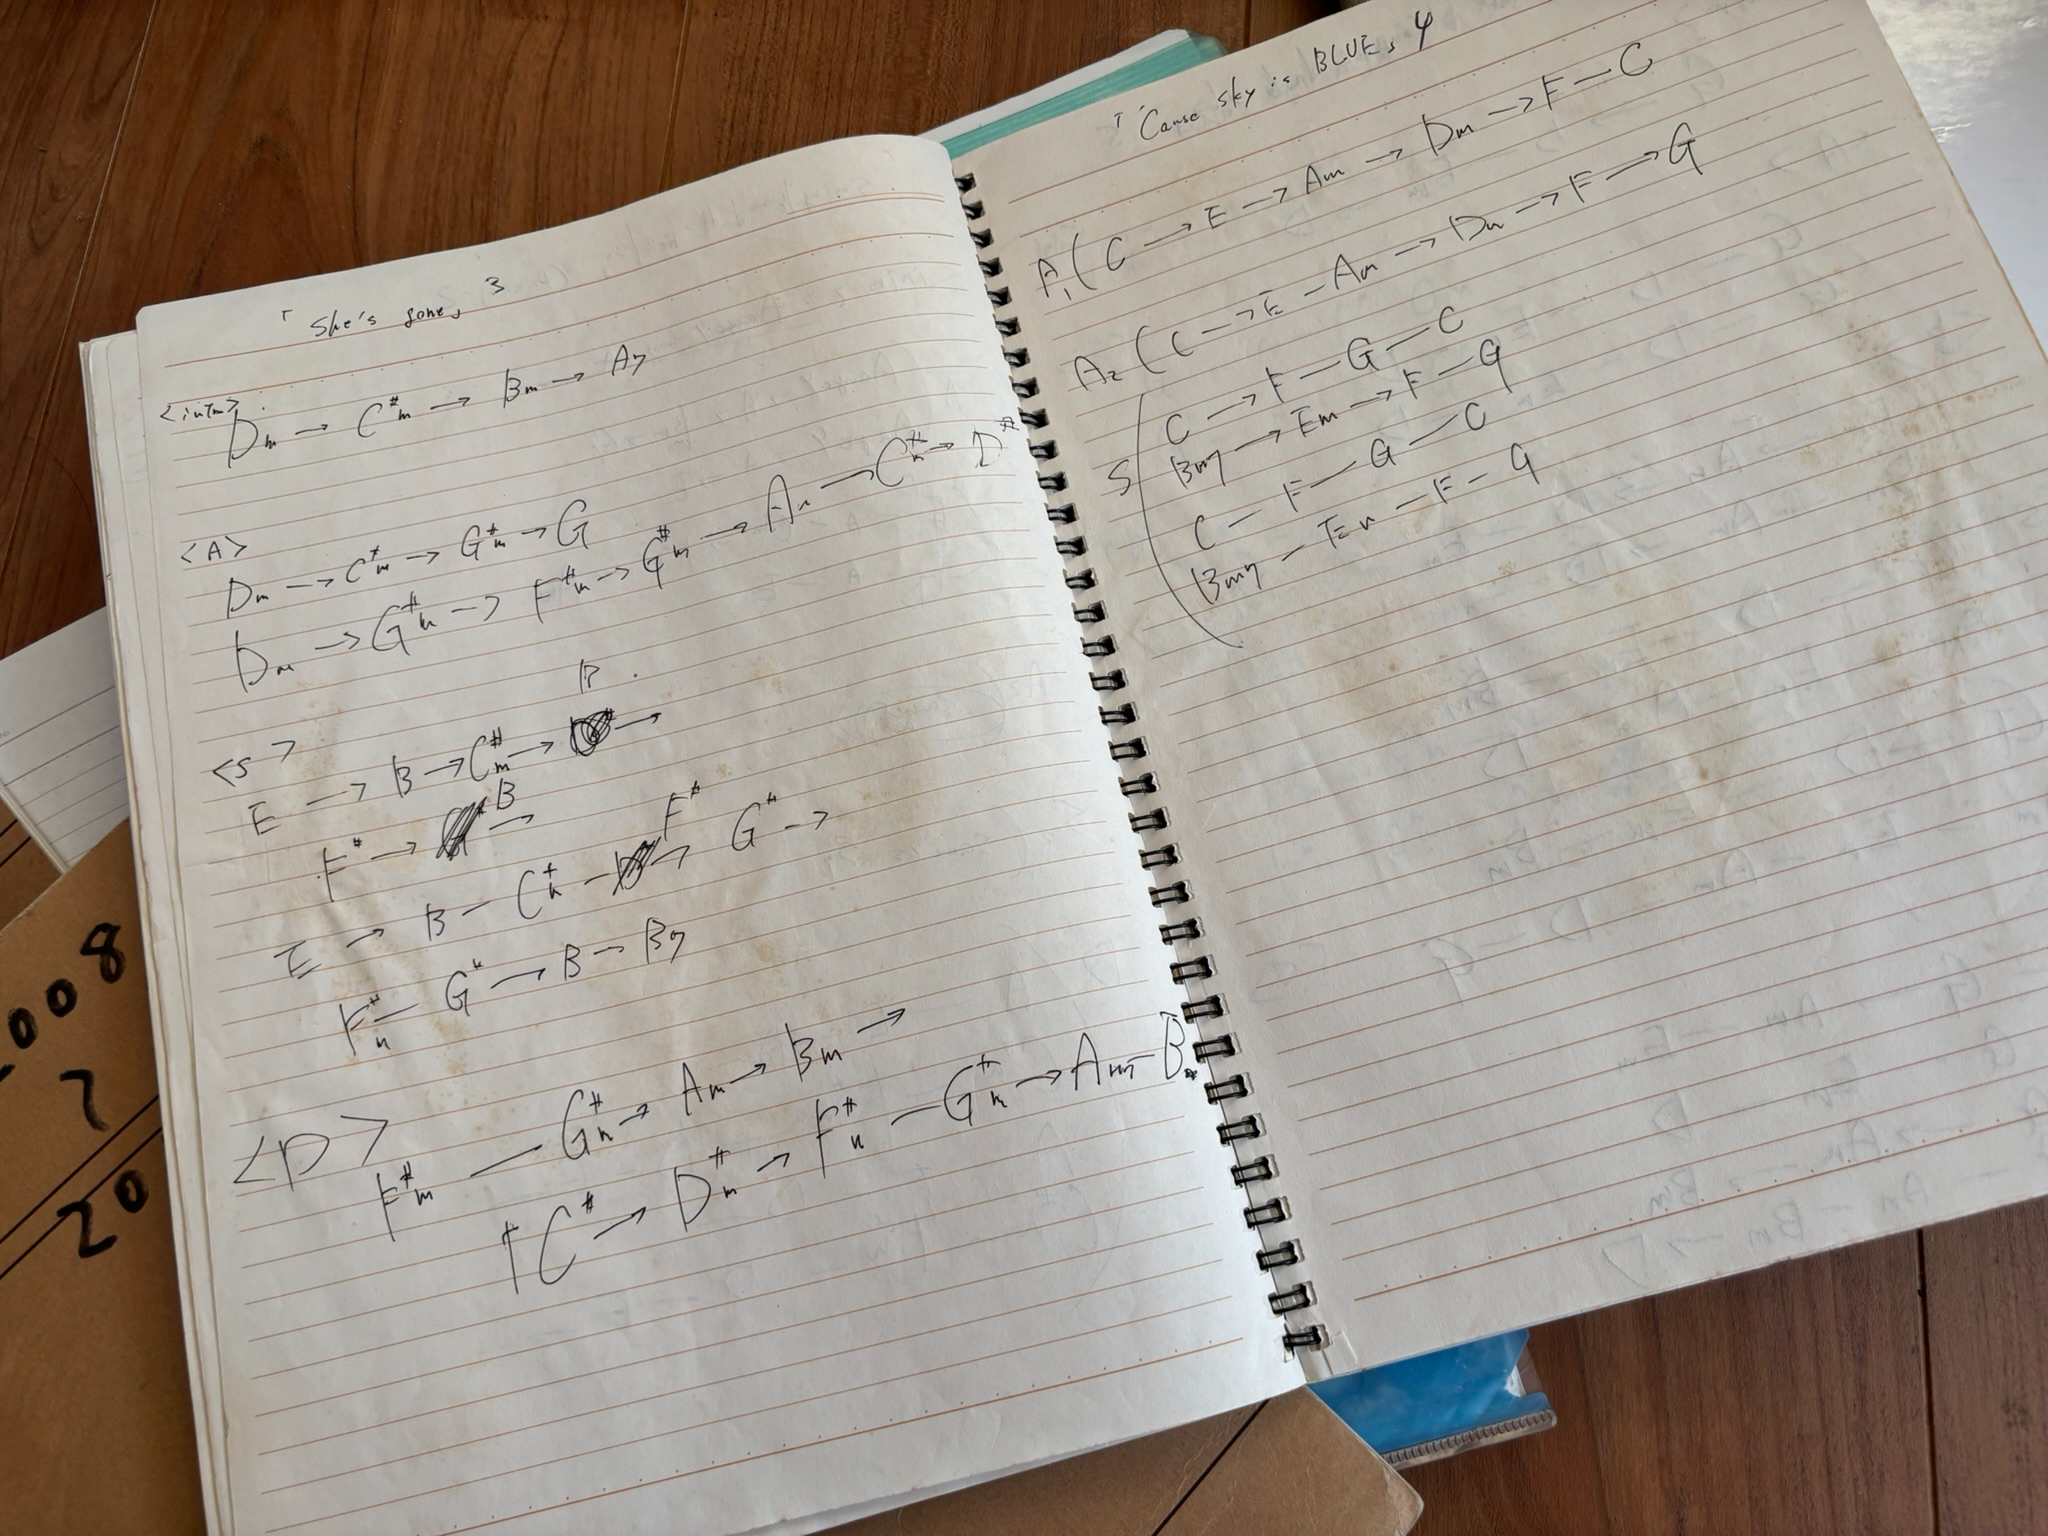 「She's gone」 3
<intro>
Dm → C#m → Bm → A7
<A>
Dm → C#m → G#m → G
Dm → G#m → F#m → G#m → Am → C#m → D#
<S>
E → B → C#m → →
F# → B →
E → B – C#m – F# → G# →
F#m – G# → B – B7
<D>
F#m – G#m → Am → Bm →
C# → D#m → F#m – G#m → Am7 – B
「'Cause sky is BLUE」 4
A1 ( C → E → Am → Dm → F – C
A2 ( C → E – Am → Dm → F → G
S ( C → F – G – C
Bm7 → Em → F – G
C – F – G – C
Bm7 – Em – F – G
2008
7
20